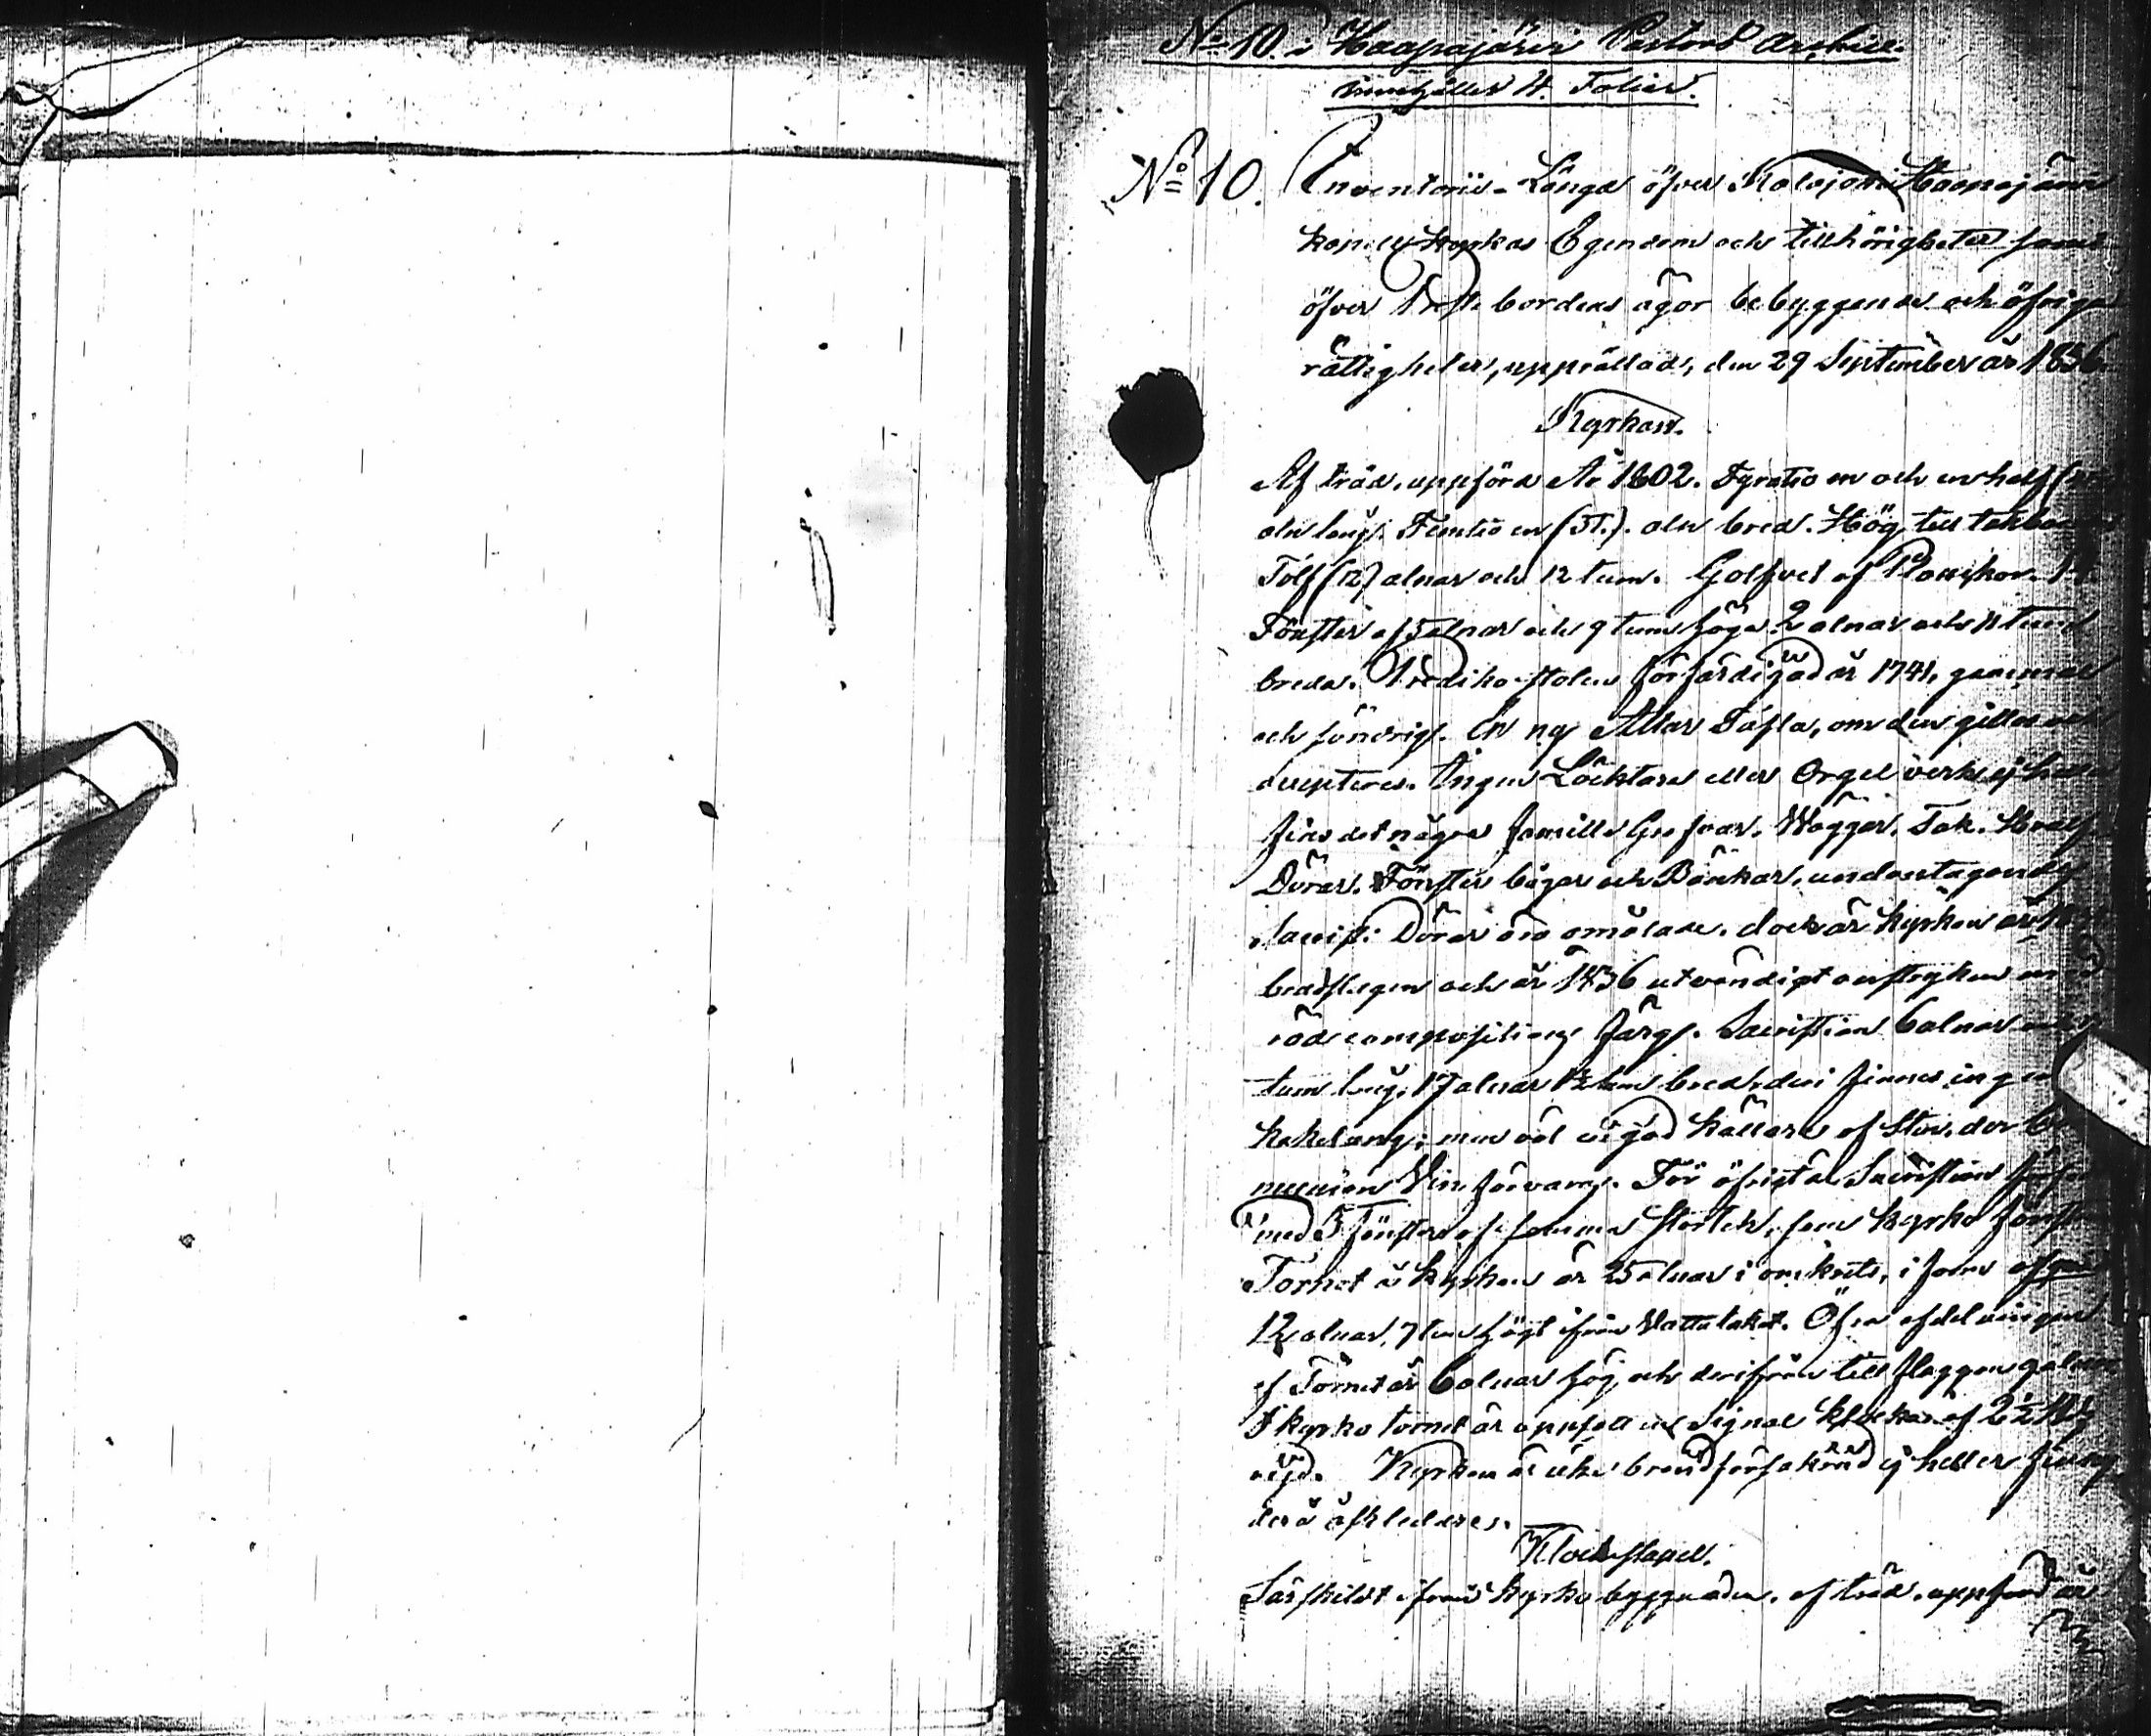 No 10. i Haapajärvi Pastors Archive.
innehåller 4. Folier.
No 10. Inventarii-Längd öfver Kalajoki Haapajärvi
kapell kyrkas Egendom och tillhörigheter samt
öfver Preste bordens ägor bebyggande och öfriga
rättigheter, upprättad, den 29 September år 1856.
Kyrkan.
Af träd, uppförd År 1802. Fyratio en och en half
aln lång. Femtio en (51.). aln bred. Hög till
Tolf (12) alnar och 12 tum. Golfvet af Plankor. 14.
Fönster af 5 alnar och 9 tum höga 2 alnar och 11 tum
breda. Prediko-stolen förfärdigad år 1741, gammal
och söndrig. En ny Altar Tafla, om den gillas och
Ingen Läcktare eller Orgel verk ej heller
fins det några famille Grafvar. Väggar, Tak,
Dörar, Fönster bågar och Bänkar, undantagandes
Dörar äro omålade, dock är kyrkan år
brädslagen och år 1836 utvändigt anstryken med
röd compositions färg. Sacristian 6 alnar och
tum lång, 17 alnar 12 tum bred, deri finnes ingen
kakelung; men väl en god källare af Sten, der
Vin förvaras. För öfrigt är Sacristian
med 3 fönster af samma storlek, som kyrko fönstren
Tornet å kyrkan är 25 alnar i omkrets, i form af
12 alnar, 7 tum högt ifrån Vattutaket. Öfra afdelningen
af Tornet är 6 alnar hög och derifrån till flaggan 9 alnar
I kyrko tornet är uppsatt en Signal klocka af 2½
vigd. Kyrkan är icke brandförsäkrad ej heller finnes
derå åskledare.
Klockstapel.
Särskildt ifrån kyrko byggnaden, af träd, uppförd år